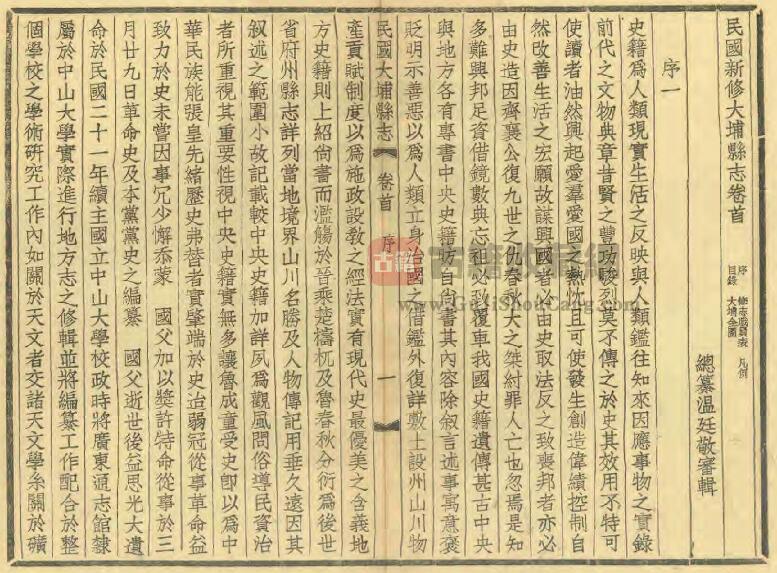 民國新修大埔縣志卷首
序 修志職員表 凡例
目錄 大埔全圖
總纂溫廷敬審輯
序一
史籍爲人類現實生活之反映與人類鑑往知來因應事物之實錄
前代之文物典章昔賢之豐功駿列莫不傳之於史其效用不特可
使讀者油然興起愛羣愛國之熱忱且可使發生創造偉績控制自
然改善生活之宏願故謀興國者必由史取法反之致喪邦者亦必
由史造因齊襄公復九世之仇春秋大之桀紂罪人亡也忽焉是知
多難興邦足資借鏡數典忘祖必致覆車我國史籍遺傳甚古中央
與地方各有專書中央史籍坊自尚書其內容除敘言述事寓意褒
貶明示善惡以爲人類立身治國之借鑑外復詳敷土設州山川物
民國大埔縣志 卷首 序 一
產貢賦制度以爲施政設教之經法實有現代史最優美之含義地
方史籍則上紹尚書而濫觴於晉乘楚檮杌及魯春秋分衍爲後世
省府州縣志詳列當地境界山川名勝及人物傳記用垂久遠因其
敘述之範圍小故記載較中央史籍加詳夙爲觀風問俗導民資治
者所重視其重要性視中央史籍實無多讓魯成童受史卽以爲中
華民族能張皇先緒歷史弗替者實肇端於史迨弱冠從事革命益
致力於史未嘗因事冗少懈忝蒙 國父加以獎許特命從事於三
月廿九日革命史及本黨黨史之編纂 國父逝世後益思光大遺
命於民國二十一年續主國立中山大學校政時將廣東通志館隸
屬於中山大學實際進行地方志之修輯並將編纂工作配合於整
個學校之學術研究工作內如關於天文者交諸天文學系關於礦
古籍
古籍收藏網
www.GujiShouCang.com